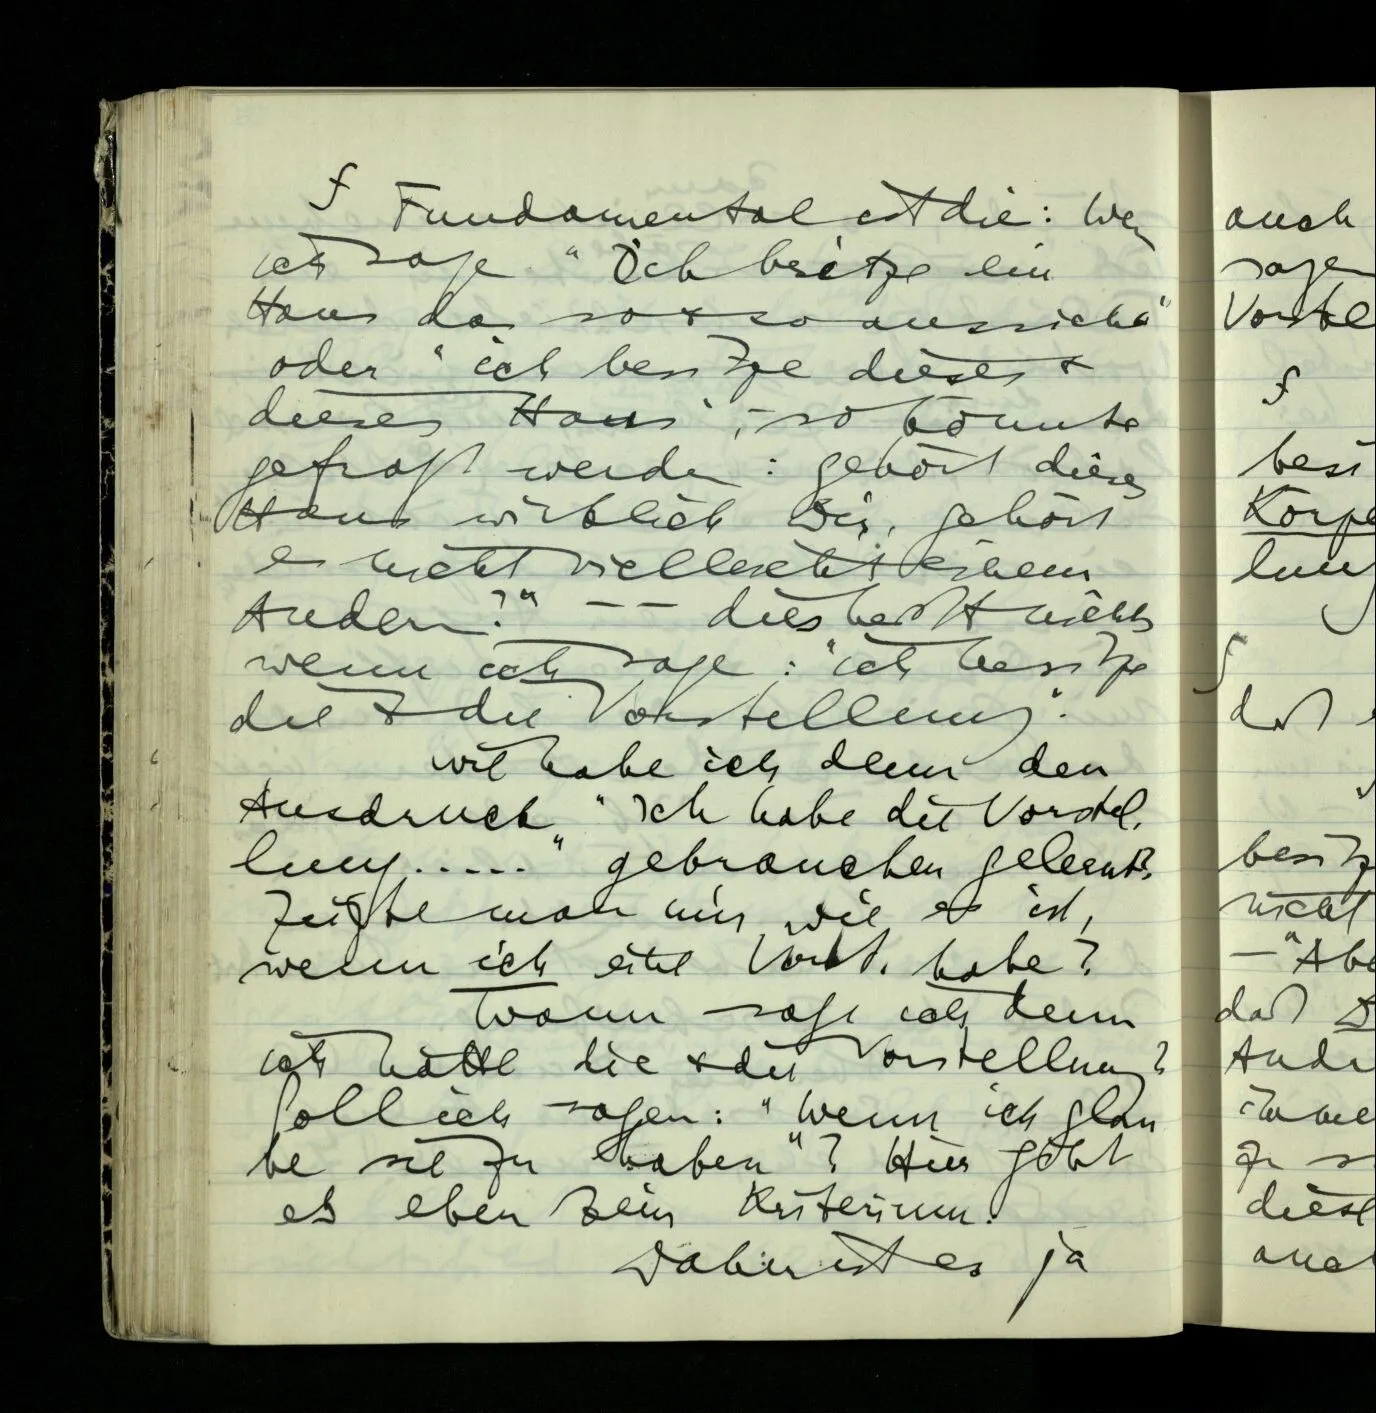 f Fundamental ist die: Wen
ich sage "Ich besitze ein
Haus das so & so aussieht"
oder "ich besitze dieses &
dieses Haus", – so könnte
gefragt werden: gehört dieses
Haus wirklich Dir, gehört
es nicht vielleicht einem
Andern?" – – dies heißt nichts
wenn ich sage: "ich besitze
die & die Vorstellung".
Wie habe ich denn den
Ausdruck "Ich habe die Vorstel-
lung....." gebrauchen gelernt?
Zeigte man mir, wie es ist,
wenn ich eine Vorst. habe?
Wann sage ich denn
ich hätte die & die Vorstellung?
Soll ich sagen: "Wenn ich glau
be sie zu haben"? Hier gibt
es eben kein Kriterium.
Daher ist es ja
auch
sagen
Vorstel
f
besi
Körpe
lung
f
daß
besitz
nicht
– "Abe
daß
Ande
imme
zu
diese
auc